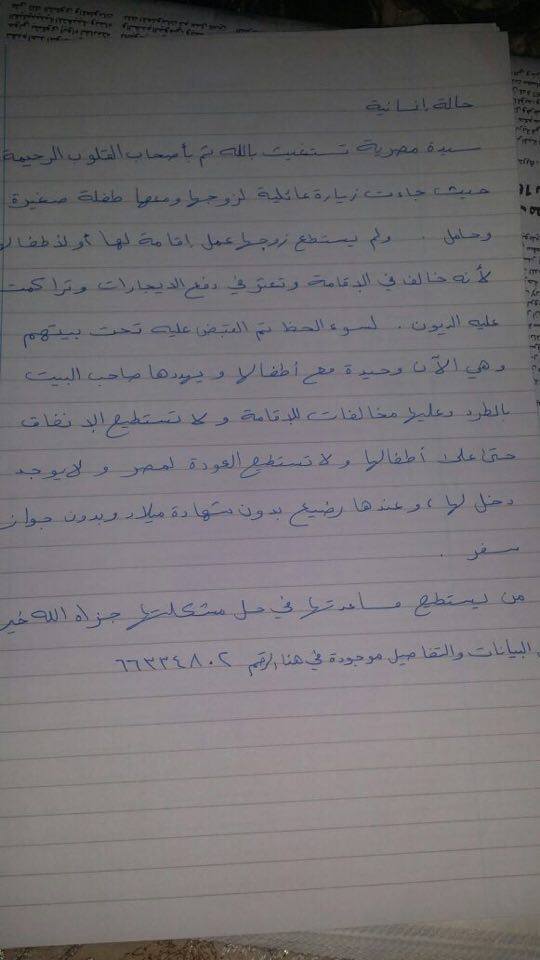 حالة إنسانية
سيدة مصرية تستغيث بالله ثم بأصحاب القلوب الرحيمة
حيث جاءت زيارة عائلية لزوجها ومعها طفلة صغيرة
وحامل . ولم يستطع زوجها عمل إقامة لها أو لأطفالها
لأنه خالف في الإقامة وتعثر في دفع الايجارات وتراكمت
عليه الديون . لسوء الحظ تم القبض عليه تحت بيتهم
وهي الآن وحيدة مع أطفالها ويهددها صاحب البيت
بالطرد وعليها مخالفات للإقامة ولا تستطيع الإنفاق
حتى على أطفالها ولا تستطيع العودة لمصر ولا يوجد
دخل لها، وعندها رضيع بدون شهادة ميلاد وبدون جواز
سفر .
من يستطيع مساعدتها في حل مشكلتها جزاه الله خير
البيانات والتفاصيل موجودة في هذا الرقم ٦٦٣٣٤٨٠٢